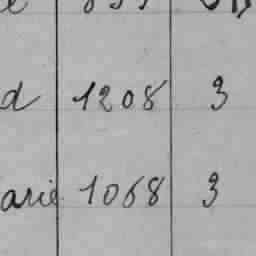 d 1208 3
arie 1068 3